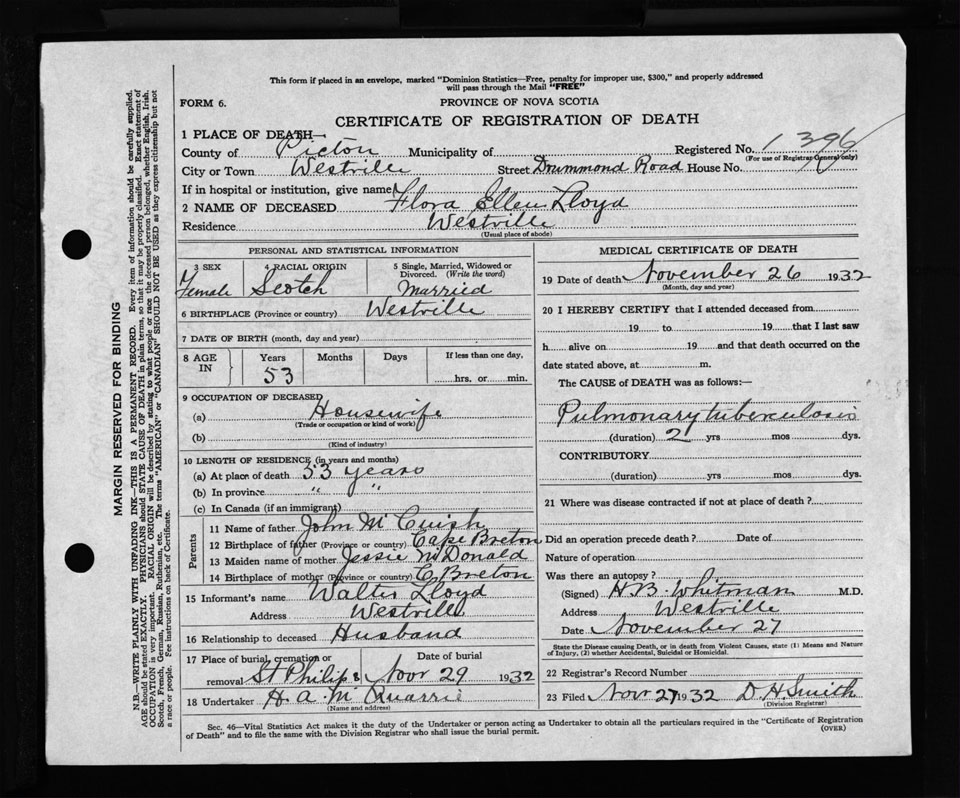 This form if placed in an envelope, marked "Dominion Statistics—Free, penalty for improper use, $300," and properly addressed
will pass through the Mail "FREE"
FORM 6.
PROVINCE OF NOVA SCOTIA
CERTIFICATE OF REGISTRATION OF DEATH
1 PLACE OF DEATH—
County of Pictou Municipality of Registered No. 1396
(For use of Registrar General only)
City or Town Westville Street Drummond Road House No.
If in hospital or institution, give name
2 NAME OF DECEASED Flora Ellen Lloyd
Residence Westville
(Usual place of abode)
PERSONAL AND STATISTICAL INFORMATION
3 SEX 4 RACIAL ORIGIN 5 Single, Married, Widowed or
Divorced. (Write the word)
Female Scotch Married
6 BIRTHPLACE (Province or country) Westville
7 DATE OF BIRTH (month, day and year)
8 AGE IN Years Months Days If less than one day,
53 hrs. or min.
9 OCCUPATION OF DECEASED
(a) Housewife
(Trade or occupation or kind of work)
(b)
(Kind of industry)
10 LENGTH OF RESIDENCE (in years and months)
(a) At place of death 53 years
(b) In province " "
(c) In Canada (if an immigrant)
Parents
11 Name of father John McCuish
12 Birthplace of father (Province or country) Cape Breton
13 Maiden name of mother Jessie McDonald
14 Birthplace of mother (Province or country) C. Breton
15 Informant's name Walter Lloyd
Address Westville
16 Relationship to deceased Husband
17 Place of burial, cremation or Date of burial
removal St Philips Novr 29 1932
18 Undertaker H. A. McQuarrie
(Name and address)
MEDICAL CERTIFICATE OF DEATH
19 Date of death November 26 1932
(Month, day and year)
20 I HEREBY CERTIFY that I attended deceased from
19 to 19 that I last saw
h alive on 19 and that death occurred on the
date stated above, at m.
The CAUSE of DEATH was as follows:—
Pulmonary tuberculosis
(duration) 2 yrs mos dys.
CONTRIBUTORY
(duration) yrs mos dys.
21 Where was disease contracted if not at place of death?
Did an operation precede death? Date of
Nature of operation
Was there an autopsy?
(Signed) H. B. Whitman M.D.
Address Westville
Date November 27
State the Disease causing Death, or in death from Violent Causes, state (1) Means and Nature
of Injury, (2) whether Accidental, Suicidal or Homicidal.
22 Registrar's Record Number
23 Filed Novr 27 1932 D. H. Smith
(Division Registrar)
Sec. 46—Vital Statistics Act makes it the duty of the Undertaker or person acting as Undertaker to obtain all the particulars required in the "Certificate of Registration
of Death" and to file the same with the Division Registrar who shall issue the burial permit.
(OVER)
MARGIN RESERVED FOR BINDING
N.B.—WRITE PLAINLY WITH UNFADING INK—THIS IS A PERMANENT RECORD. Every item of information should be carefully supplied.
AGE should be stated EXACTLY. PHYSICIANS should STATE CAUSE OF DEATH in plain terms, so that it may be properly classified. Exact statement of
OCCUPATION is very important. RACIAL ORIGIN will be described by stating to what people or race the deceased person belonged, whether English, Irish,
Scotch, French, German, Russian, Ruthenian, etc. The terms "AMERICAN" or "CANADIAN" SHOULD NOT BE USED as they express citizenship but not
a race or people. See instructions on back of Certificate.